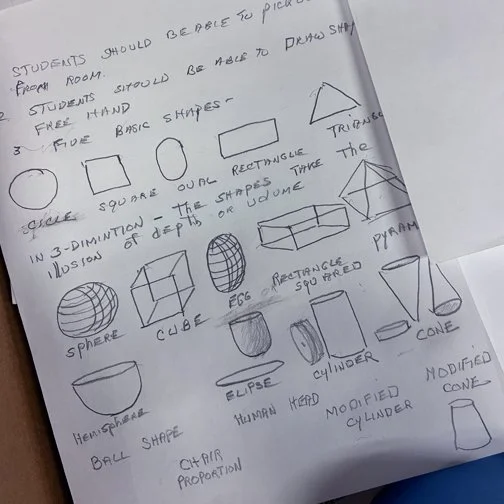 STUDENTS SHOULD BE ABLE TO PICK
FROM ROOM.
2 STUDENTS SHOULD BE ABLE TO DRAW SHAP
FREE HAND
3 FIVE BASIC SHAPES-
CICLE SQUARE OVAL RECTANGLE TRIANG
IN 3-DIMINTION - THE SHAPES TAKE THE
ILUSION OF DEPTH OR VOLUME
SPHERE CUBE EGG RECTANGLE SQUARED PYRAM
HEMISPHERE ELIPSE CYLINDER CONE
BALL SHAPE HUMAN HEAD MODIFIED CYLINDER MODIFIED CONE
CHAIR
PROPORTION